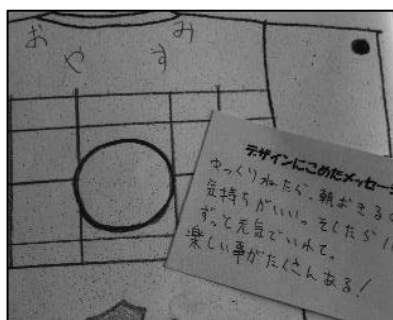 おやすみ
デザインにこめたメッセージ
ゆっくりねたら。朝おきる
気持ちがいい。そしたら
ずっと元気でいれて。
楽しい事がたくさんある!